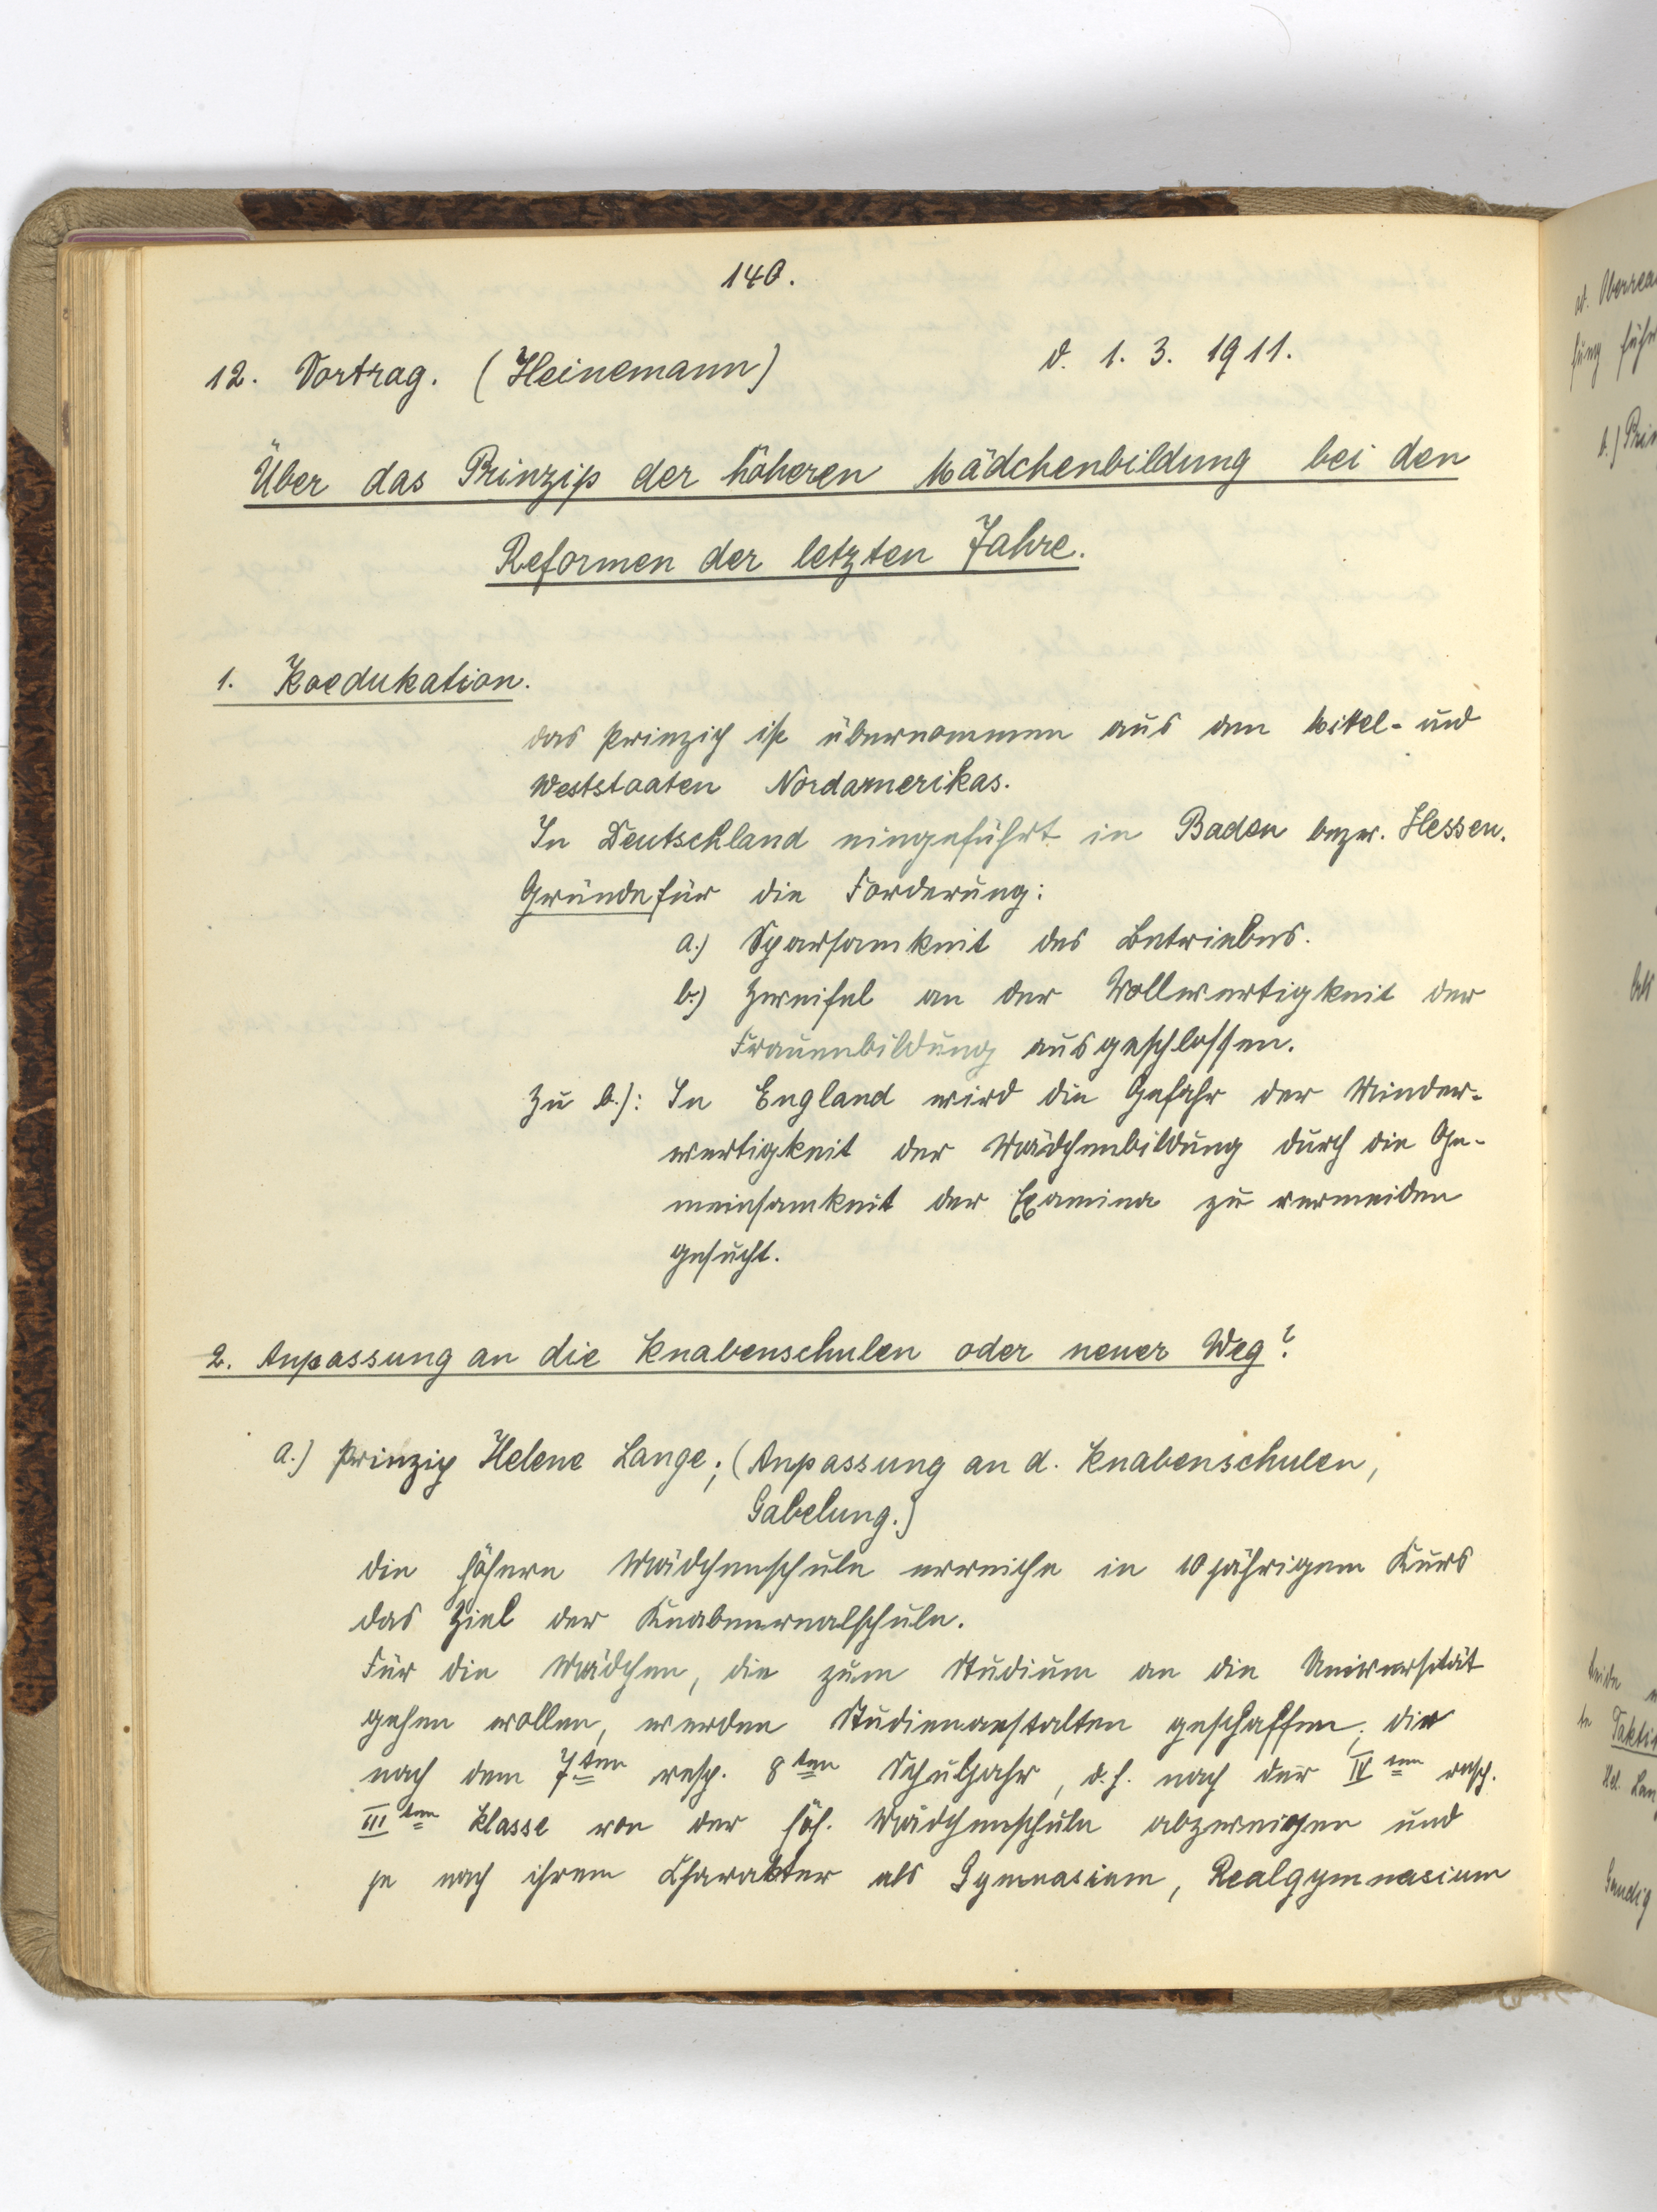 140.
12. Vortrag. (Heinemann) d. 1. 3. 1911.
Über das Prinzip der höheren Mädchenbildung bei den
Reformen der letzten Jahre.
1. Koedukation.
Das Prinzip ist übernommen aus den Mittel- und
Weststaaten Nordamerikas.
In Deutschland eingeführt in Baden bezw. Hessen.
Gründe für die Forderung:
a.) Sparsamkeit des Betriebes.
b.) Zweifel an der Vollwertigkeit der
Frauenbildung ausgeschlossen.
Zu b.): In England wird die Gefahr der Minder-
wertigkeit der Mädchenbildung durch die Ge-
meinsamkeit der Examina zu vermeiden
gesucht.
2. Anpassung an die Knabenschulen oder neuer Weg?
a.) Prinzip Helene Lange; (Anpassung an d. Knabenschulen,
Gabelung.)
Die höhere Mädchenschule erreiche in 10jährigem Kurs
das Ziel der Knabenrealschule.
Für die Mädchen, die zum Studium an die Universität
gehen wollen, werden Studienanstalten geschaffen, die
nach dem 7ten resp. 8ten Schuljahr, d.h. nach der IVten resp.
IIIten Klasse von der höh. Mädchenschule abzweigen und
je nach ihrem Charakter als Gymnasium, Realgymnasium